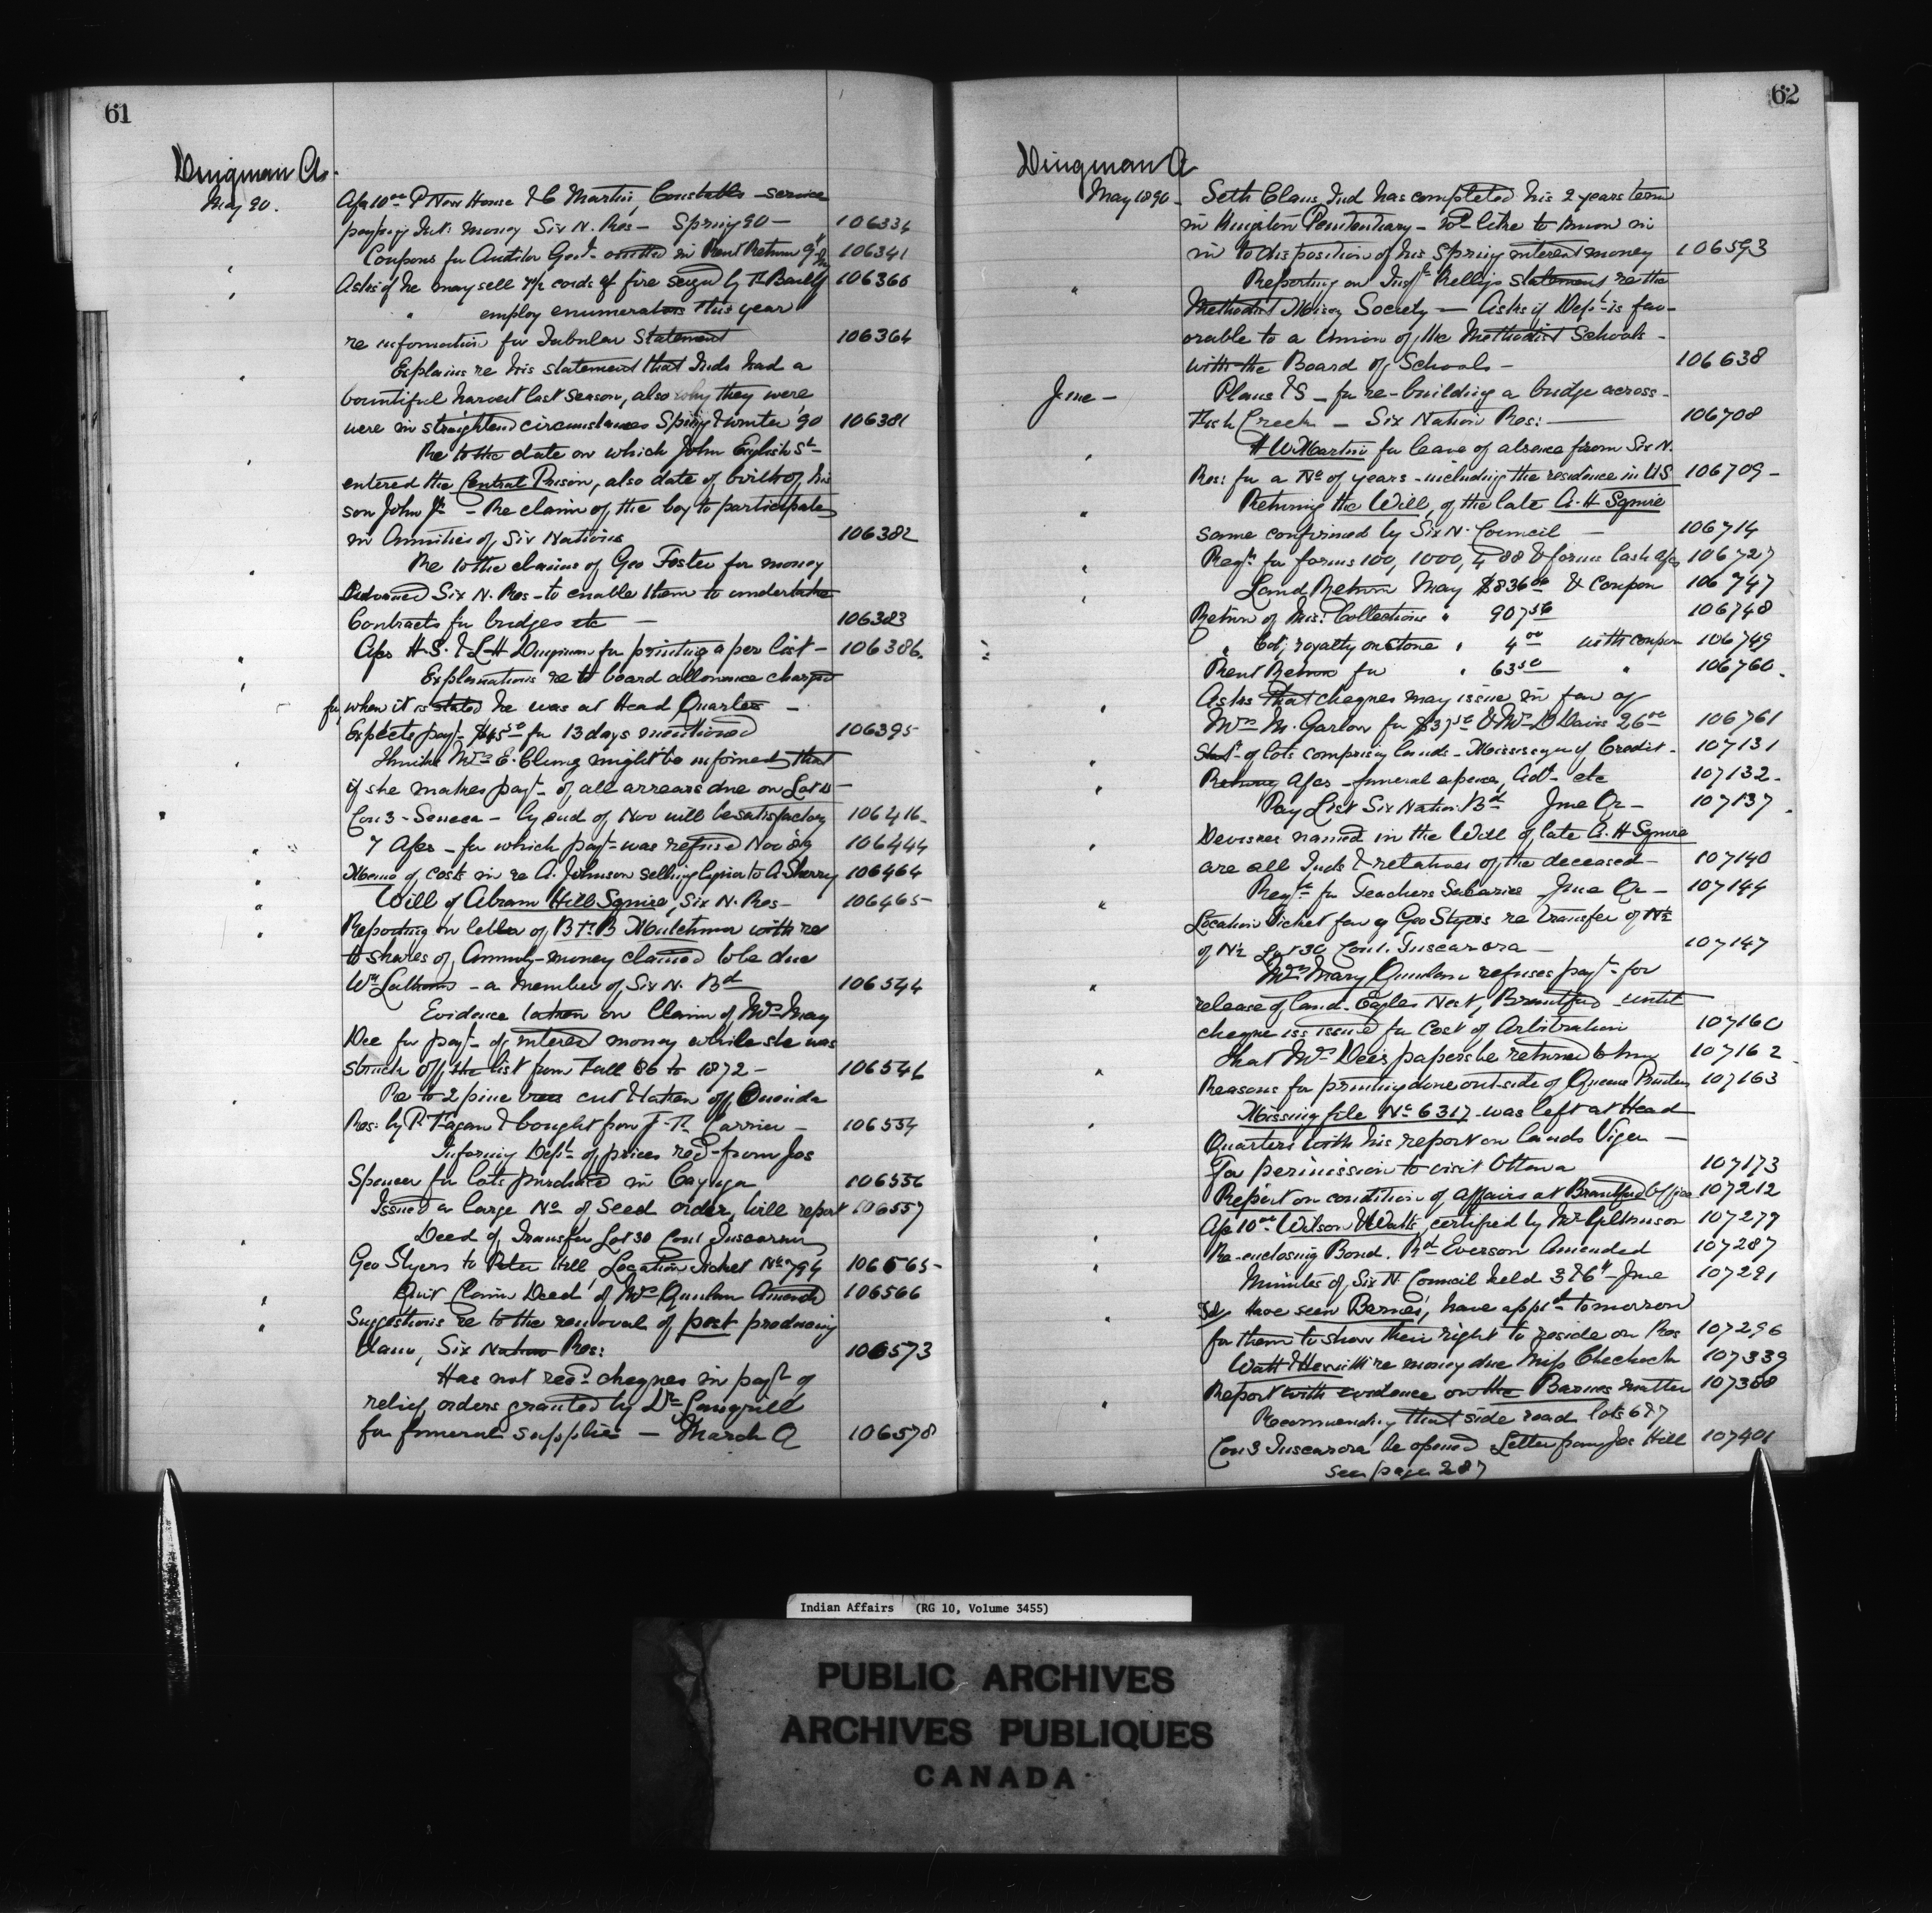 61
Dingman A.
May 90.
Afc 10.00 P New House & C Martin, Constables service
paying Int: money Six N. Res - Spring 90 - 106334
Coupons for Auditor Genl - omitted in Rent Return 106341
Asks if he may sell cords of fire seized by 106360
" employ enumerators this year
re information for Tabular Statement 106364
Explains re his statement that Inds had a
bountiful harvest last season, also why they were
were in straightened circumstances Spring & winter 90 106381
Re to the date on which John English Sr
entered the Central Prison, also date of birth of his
son John Jr - Re claim of the boy to participate
in Annuities of Six Nations 106382
Re to the claims of Geo Foster for money
Advanced Six N. Res - to enable them to undertake
Contracts for bridges etc - 106383
Afcs H.S. & L.H Dingman for printing a per list - 106386
Explanations re to board allowance charged
for, when it is stated he was at Head Quarters -
Expects payt - $45.50 for 13 days mentioned 106395
Thinks Mrs E. Clung might be informed that
if she makes payt - of all arrears due on Lot
Con 3 - Seneca - by end of Nov will be satisfactory 106416
7 Afcs - for which payt - was refused Nov 89 106444
Memo of costs in re A. Johnson selling liquor to A. Sherry 106464
Will of Abram Hill Squire, Six N. Res - 106465
Reporting on letter of B & B Hutchinson with re
to shares of Annuity - money claimed to be due
Wm Lathom - a member of Six N. Bd 106544
Evidence taken on Claim of Mrs Mary
Dee for payt - of interest money while she was
struck off the list from Fall 66 to 1872 - 106546
Re to 2 pine trees cut & taken off Oneida
Res: by P. Fagan & bought from J. R. Carrier - 106554
Informing Dept of prices recd - from Jos
Spencer for lots purchased in Cayuga 106556
Issued a large No of Seed order, will report 106557
Deed of Transfer Lot 30 Con 1 Tuscarora
Geo Styers to Peter Hill, Location Ticket No 794 106565
Quit Claim Deed of Mrs Quinlan Amend 106566
Suggestions re to the removal of post producing
dam, Six Nation Res: 106573
Has not recd cheques in payt of
relief orders granted by Dr Langrill
for funeral supplies - March Q 106578
62
Dingman A
May 1890 - Seth Claus, Ind has completed his 2 years term
in Kingston Penitentiary - wd like to know in
in to disposition of his Spring interest money 106593
Reporting on Inspr Kellys statement, re the
Methodist Missy Society - Asks if Dept - is fav-
orable to a Union of the Methodist Schools -
with the Board of Schools - 106638
June - Plans & S - for re-building a bridge across -
Creek - Six Nation Res: 106708
H W Martin for leave of absence from Six N.
Res: for a No of years - including the residence in US 106709
Returning the Will, of the late A. H Squire
same confirmed by Six N. Council - 106714
Reqn for forms 100, 1000, 4 88 & forms Cash Afcs 106727
Land Return May $836.00 & Coupon 106747
Return of Mis: Collections " 907.56 106748
" Col; royalty on stone " 4.00 with coupon 106749
Rent Return for " 63.50 " 106760
Asks that cheques may issue in fav of
Mrs M. Garlow for $37.50 & Mrs D Davis 26.00 106761
Stat - of lots comprising lands - Mississaguas of Credit - 107131
Returns Afcs - funeral expenses, Adt - etc 107132
Pay List Six Nation Bd June Qr - 107137
Devisees named in the Will of late A. H Squire
are all Inds & relatives of the deceased - 107140
Reqn for Teachers Salaries June Qr - 107144
Location Ticket fav of Geo Styers re transfer of N½
of N½ Lot 30 Con 1. Tuscarora - 107147
Mrs Mary Quinlan refuses payt - for
release of land - Eagles Nest, Brantford until
cheque is issued for Cost of Arbitration 107160
that Mrs Dee's papers be returned to him 107162
Reasons for printing done outside of Queens Printer 107163
Missing file No 6317 was left at Head
Quarters with his report on lands Viger -
For permission to visit Ottawa 107173
Report on condition of affairs at Brantford Office 107212
Afc 10.00 Wilson & Watts, certified by Mr Gilkinson 107279
Re-enclosing Bond. Rd Everson Amended 107287
Minutes of Six N. Council held 3 & 6th - June 107291
Have seen Barnes', have apptd tomorrow
for them to show their right to reside on Res 107296
Watt & Hewitt re money due Miss Chechock 107339
Report with evidence on the Barnes matter 107388
Recommending that side road lots 6 & 7
Con 3 Tuscarora be opened Letter from Jos Hill 107401
see page 287
Indian Affairs (RG 10, Volume 3455)
PUBLIC ARCHIVES
ARCHIVES PUBLIQUES
CANADA